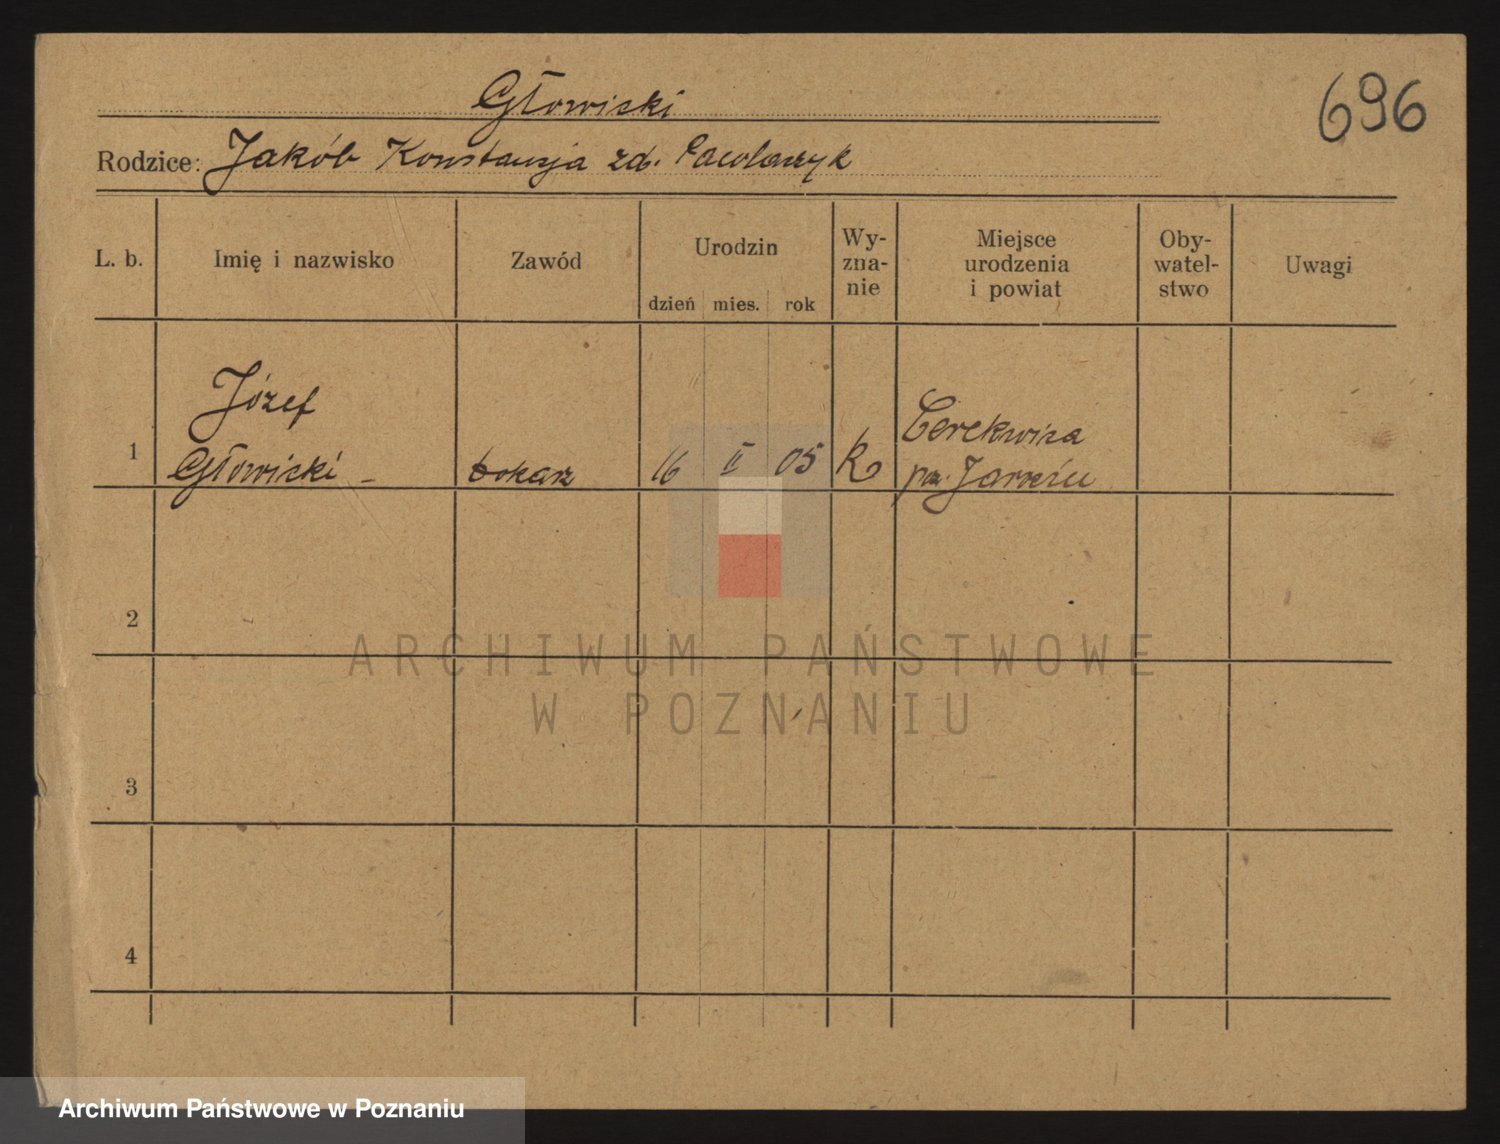 Głowiski
696
Rodzice: Jakób Konstancja zd.
L. b. Imię i nazwisko Zawód Urodzin dzień mies. rok Wy-zna-nie Miejsce urodzenia i powiat Oby-watel-stwo Uwagi
Józef
1 Głowiski - tokarz 16 II 05 R Cerekwica
pow. Jarocin
2
ARCHIWUM PAŃSTWOWE
W POZNANIU
3
4
Archiwum Państwowe w Poznaniu